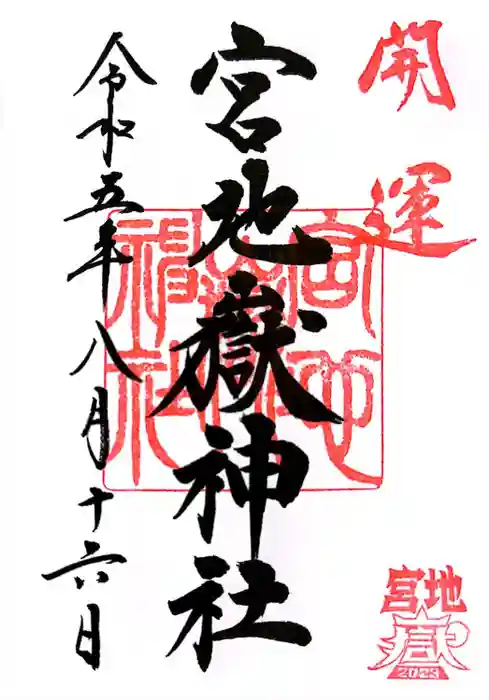 開運
宮地嶽神社
宮地嶽神社
令和五年八月十六日
宮地
嶽
2023